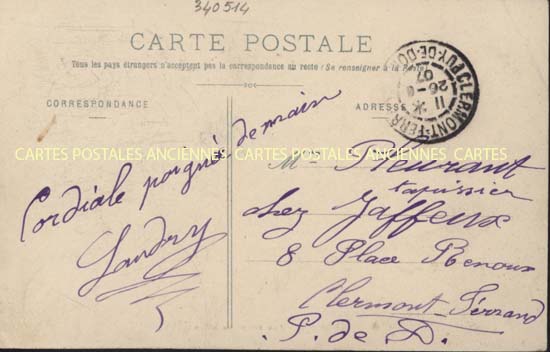 340514
CARTE POSTALE
Tous les pays étrangers n'acceptent pas la correspondance au recto (Se renseigner à la Poste)
CORRESPONDANCE
ADRESSE
CLERMONT-FERRAND PUY-DE-DOME
11
26-
07
CARTES POSTALES ANCIENNES CARTES POSTALES ANCIENNES CARTES POSTALES ANCIENNES
Cordiale poignée de main
Landry
Mr Fleurant
tapissier
chez Jaffeux
8 Place Renoux
Clermont-Ferrand
P. de D.